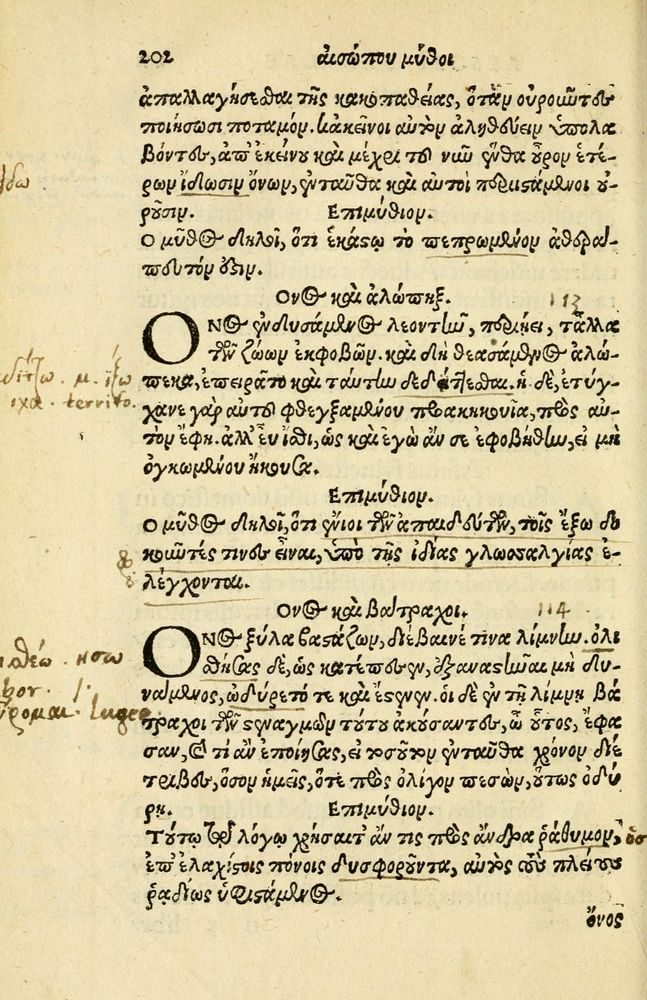 202 αἰσώπου μῦθοι
ἀπαλλαγήσεσθαι τῆς κακοπαθείας, ὅταν οὐροῦντες
ποιήσωσι ποταμόν. κἀκεῖνοι αὐτὸν ἀληθεύειν ὑπολα
βόντες, ἀπ' ἐκείνου καὶ μέχρι τοῦ νῦν ἔνθα οὖρον ἑτέ-
ρων ἴδωσιν ὄνων, ἐνταῦθα καὶ αὐτοὶ περιιστάμενοι οὐ-
ροῦσιν. Ἐπιμύθιον.
Ὁ μῦθος δηλοῖ, ὅτι ἑκάστῳ τὸ πεπρωμένον ἀθερά-
πευτόν ἐστιν.
Ὄνος καὶ ἀλώπηξ. 113
ΟΝος ἐνδυσάμενος λεοντῆν, περιῄει, τἄλλα
τῶν ζώων ἐκφοβῶν. καὶ δὴ θεασάμενος ἀλώ-
πεκα, ἐπειρᾶτο καὶ ταύτην δεδίττεσθαι. ἡ δὲ, ἐτύγ-
χανε γὰρ αὐτοῦ φθεγξαμένου προακηκουῖα, πρὸς αὐ-
τὸν ἔφη. ἀλλ' εὖ ἴσθι, ὡς καὶ ἐγὼ ἄν σε ἐφοβήθην, εἰ μὴ
ὀγκωμένου ἤκουσα.
Ἐπιμύθιον.
ὁ μῦθος δηλοῖ, ὅτι ἔνιοι τῶν ἀπαιδεύτων, τοῖς ἔξω δο
κοῦντές τινες εἶναι, ὑπὸ τῆς ἰδίας γλωσσαλγίας ἐ-
λέγχονται.
Ὄνος καὶ Βάτραχοι. 114
ΟΝος ξύλα βαστάζων, διέβαινέ τινα λίμνην. ὀλι
σθήσας δὲ, ὡς κατέπεσεν, ἐξαναστῆναι μὴ δυ-
νάμενος, ὠδύρετό τε καὶ ἔστενεν. οἱ δὲ ἐν τῇ λίμνῃ βά
τραχοι τῶν στεναγμῶν τούτου ἀκούσαντες, ὦ οὗτος, ἔφα
σαν, καὶ τί ἂν ἐποίησας, εἰ τοσοῦτον ἐνταῦθα χρόνον διέ
τριβες, ὅσον ἡμεῖς, ὅτε πρὸς ὀλίγον πεσὼν, οὕτως ὀδύ
ρῃ. Ἐπιμύθιον.
Τούτῳ τῷ λόγῳ χρήσαιτ' ἄν τις πρὸς ἄνδρα ῥᾴθυμον, ὃς
ἐπ' ἐλαχίστοις πόνοις δυσφοροῦντα, αὐτὸς τοὺς πλείους
ῥᾳδίως ὑφιστάμενος.
ὄνος
territo.
lugeo